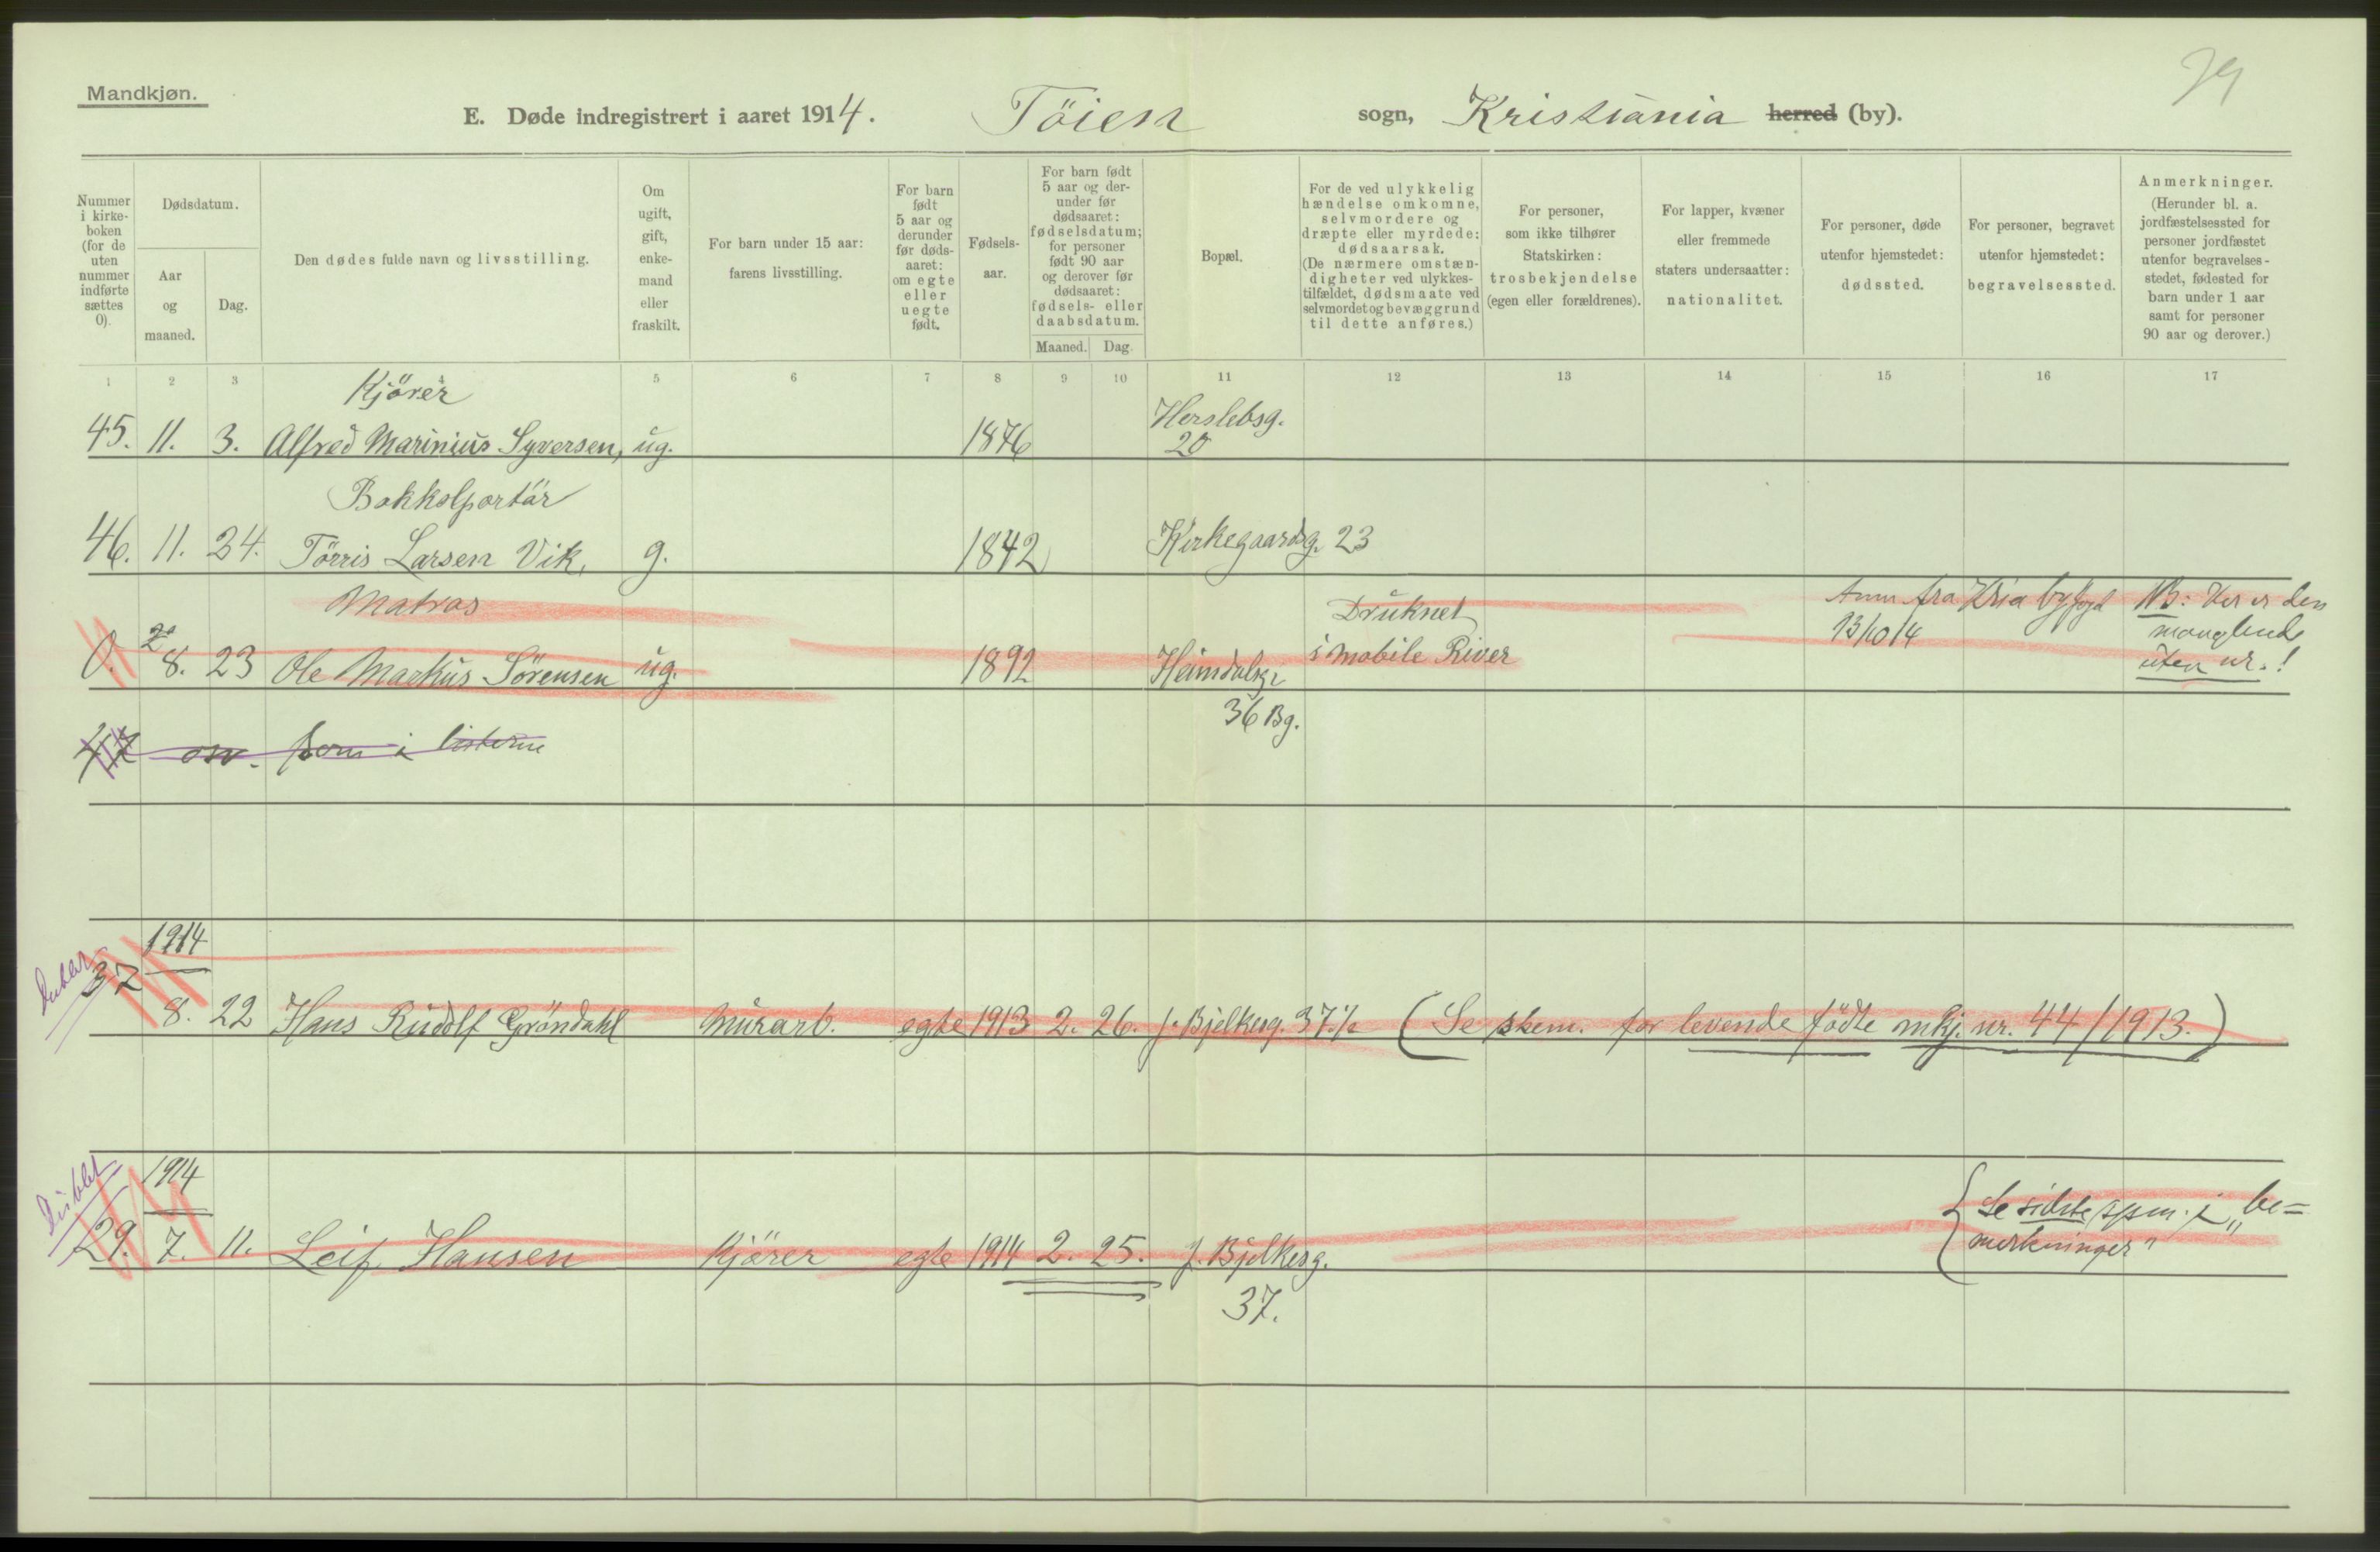 Mandkjøn.
79
E. Døde indregistrert i aaret 1914. Töien sogn, Kristiania herred (by).
Nummer i kirke-boken (for de uten nummer indførte sættes 0).
Dødsdatum.
Aar og maaned.
Dag.
Den dødes fulde navn og livsstilling.
Om ugift, gift, enke-mand eller fraskilt.
For barn under 15 aar: farens livsstilling.
For barn født 5 aar og derunder før døds-aaret: om egte eller uegte født.
Fødsels-aar.
For barn født 5 aar og der-under før dødsaaret: fødselsdatum; for personer født 90 aar og derover før dødsaaret: fødsels- eller daabsdatum.
Maaned. Dag.
Bopæl.
For de ved ulykkelig hændelse omkomne, selvmordere og dræpte eller myrdede: dødsaarsak. (De nærmere omstæn-digheter ved ulykkes-tilfældet, dødsmaate ved selvmordet og bevæggrund til dette anføres.)
For personer, som ikke tilhører Statskirken: trosbekjendelse (egen eller forældrenes).
For lapper, kvæner eller fremmede staters undersaatter: nationalitet.
For personer, døde utenfor hjemstedet: dødssted.
For personer, begravet utenfor hjemstedet: begravelsessted.
Anmerkninger. (Herunder bl. a. jordfæstelsessted for personer jordfæstet utenfor begravelses-stedet, fødested for barn under 1 aar samt for personer 90 aar og derover.)
1 2 3 4 5 6 7 8 9 10 11 12 13 14 15 16 17
Kjörer
Herslebsg.
45. 11. 3. Alfred Marinius Syversen, ug. 1876 20
Bokkolportör
46. 11. 24. Törris Larsen Vik, g. 1842 Kirkegaardsg. 23
Matros Druknet Anm fra Kria byfogd NB: Her er den
13/10 14 manglende
0. 8. 23 Ole Markus Sörensen ug. 1892 Heimdalsg. i Mobile River uten nr.!
36 Bg.
47 osv. som i listerne
1914
37
8. 22 Hans Rudolf Gröndahl Murarb. egte 1913 2. 26. J. Bjelkesg. 37 1/2 (Se skem. for levende födte mkj. nr. 44/1913.)
Dublet
1914
Se sidste spm. i „be=
29. 7. 11. Leif Hansen Kjörer egte 1914 2. 25. J. Bjelkesg. merkninger"
37.